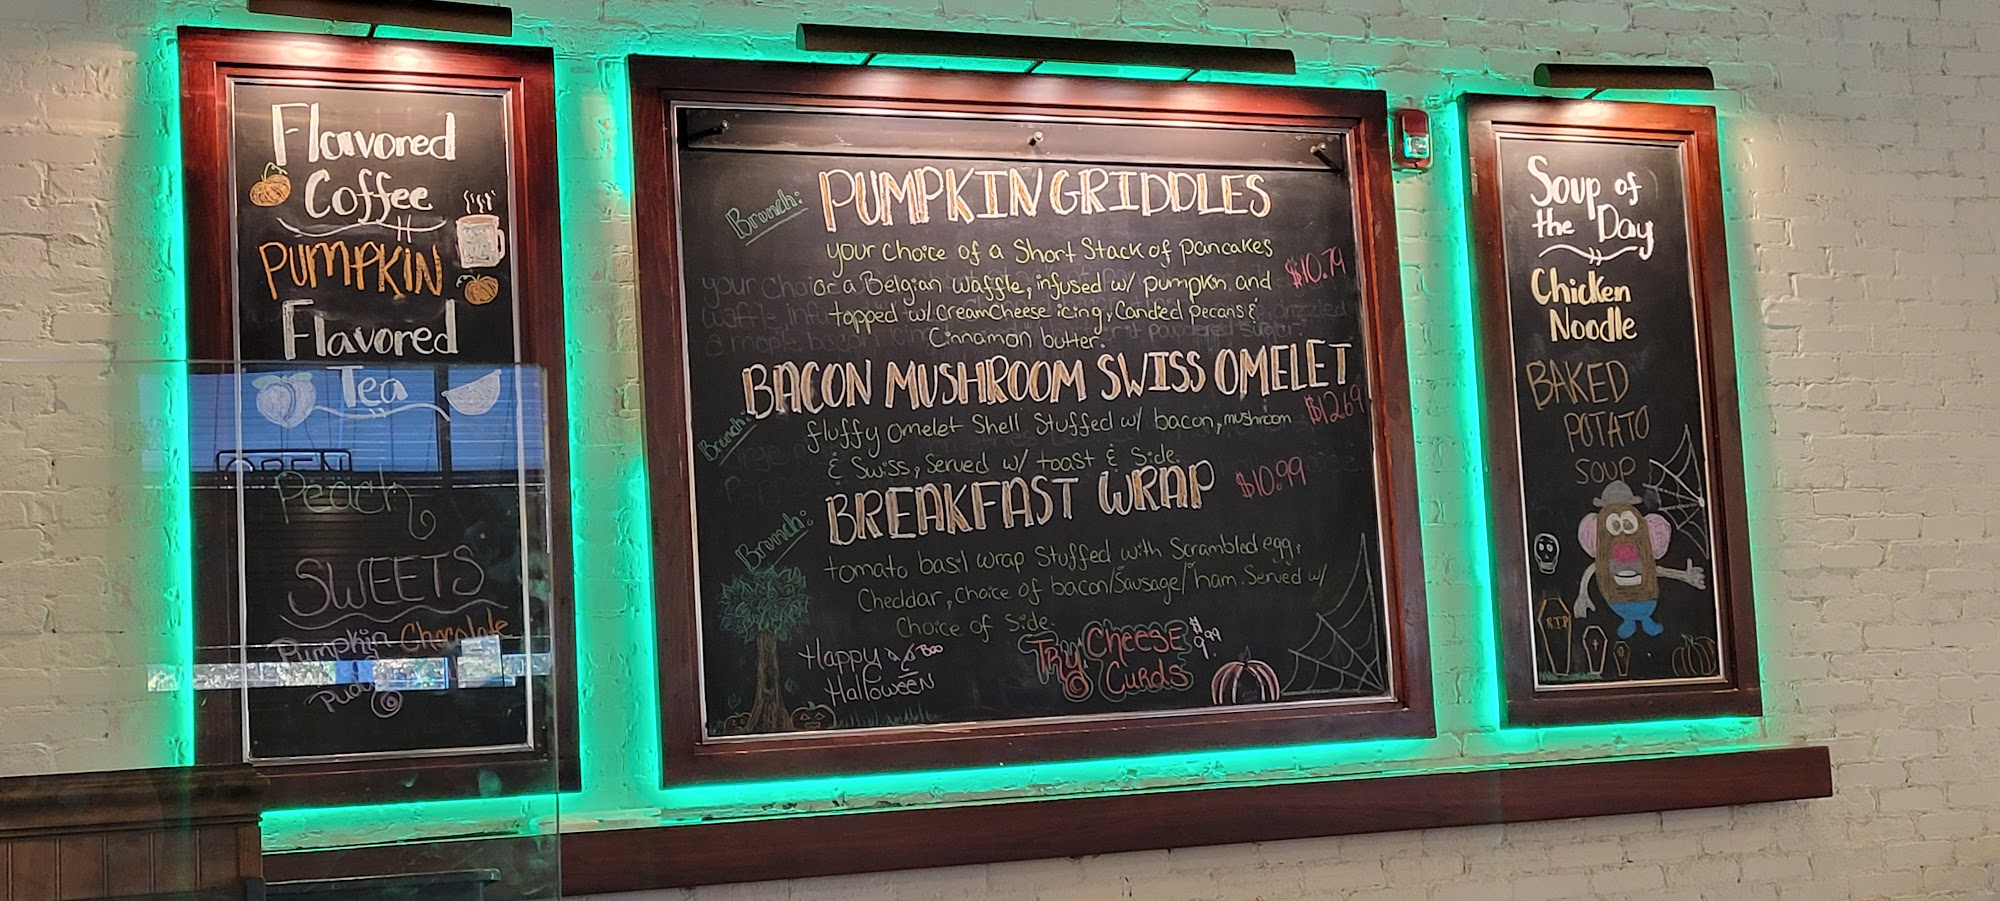 Flavored
Coffee
PUMPKIN
Flavored
Tea
OPEN
Peach
SWEETS
Pumpkin Chocolate
Brunch: PUMPKIN GRIDDLES
your choice of a Short Stack of pancakes
or a Belgian waffle, infused w/ pumpkin and $10.79
topped w/ CreamCheese icing, Candied pecans &
Cinnamon butter.
BACON MUSHROOM SWISS OMELET
Brunch: fluffy omelet Shell Stuffed w/ bacon, mushroom $12.69
& Swiss, Served w/ toast & Side.
BREAKFAST WRAP $10.99
Brunch:
tomato basil wrap Stuffed with Scrambled egg,
Cheddar, Choice of bacon/Sausage/ham. Served w/
Choice of Side.
Happy Boo
Halloween
Try Cheese $9.99
Curds
Soup of
the Day
Chicken
Noodle
BAKED
POTATO
SOUP
R.I.P